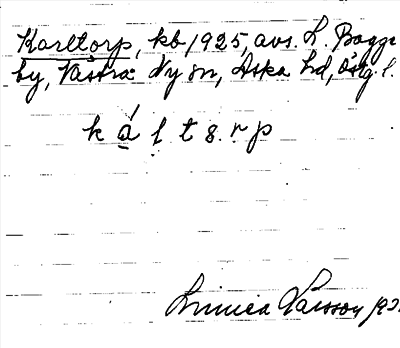 Karltorp, kb 1925, avs. L. Bagge
by, Västra Ny sn, Aska hd, Östg. l.
k á l t s. r p
Linnea Larsson 192